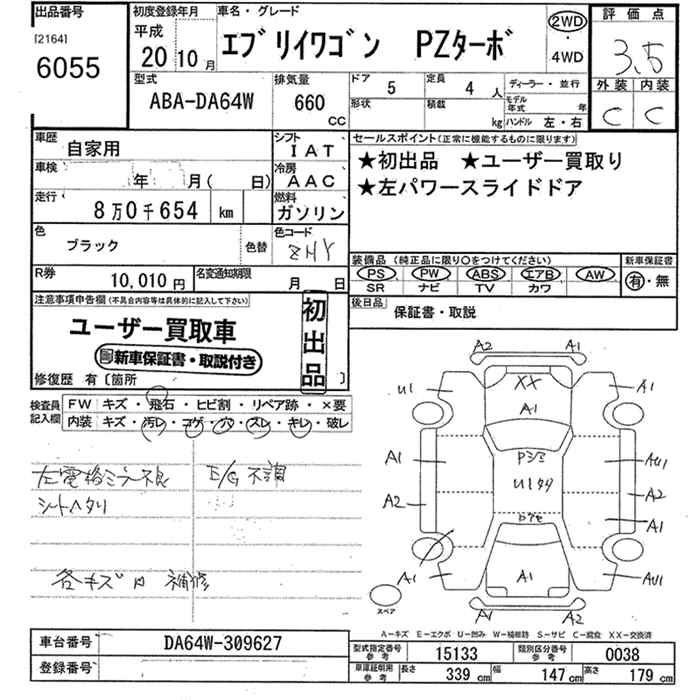 出品番号 初度登録年月 車名・グレード 2WD 評価点
[2164] 平成 エブリイワゴン PZターボ ・ 3.5
6055 20 10月 4WD
型式 排気量 ドア 5 定員 4人 ディーラー・並行 外装 内装
ABA-DA64W 660 cc 形状 積載 kg モデル年式 年 C C
ハンドル 左・右
車歴 自家用 シフト IAT セールスポイント(正常に機能するものに限ります)
車検 年 月( 日) 冷房 AAC ★初出品 ★ユーザー買取り
走行 8万0千654 km 燃料 ガソリン ★左パワースライドドア
色 ブラック 色替 色コード ZHY
装備品 (純正品に限り○をつけてください) 新車保証書
R券 10,010円 名変通知期限 月 日 PS PW ABS エアB AW 有・無
SR ナビ TV カワ
注意事項申告欄(不具合内容等は具体的に記入して下さい) 初出品 後日品 保証書・取説
ユーザー買取車
新車保証書・取説付き
修復歴 有〔箇所 〕
検査員記入欄 FW キズ・飛石・ヒビ割・リペア跡・×要
内装 キズ・汚レ・コゲ・穴・スレ・キレ・破レ
左電格ミラー不良 E/G不調
シートヘタリ
各キズ凹 補修
A2 A1
U1 XX A1
A1
A1 AU1
U1
A2 A2
A1
A1 A1 AU1
スペア
A1 A2
A-キズ E-エクボ U-凹み W-補修跡 S-サビ C-腐食 XX-交換済
車台番号 DA64W-309627 型式指定番号 参考 15133 類別区分番号 参考 0038
登録番号 車庫証明用 参考 長さ 339 cm 幅 147 cm 高さ 179 cm